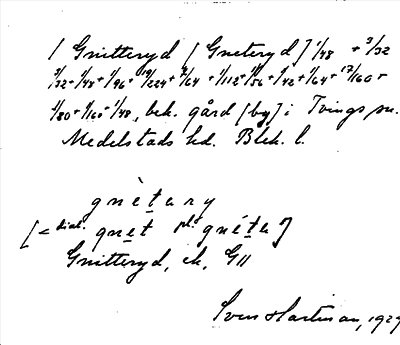 / Gnitteryd [Gneteryd] 1/48 + 3/32
3/32 + 1/48 + 1/96 + 19/224 + 3/64 + 1/112 + 1/56 + 1/42 + 1/64 + 17/160 +
1/80 + 1/160 + 1/48, bek. gård [by] i Tvings sn.
Medelstads hd. Blek. l.
gnètary
[< dial. gnet pl. gnéta]
Gnitteryd, ek, G11
Sven Hartman, 1929